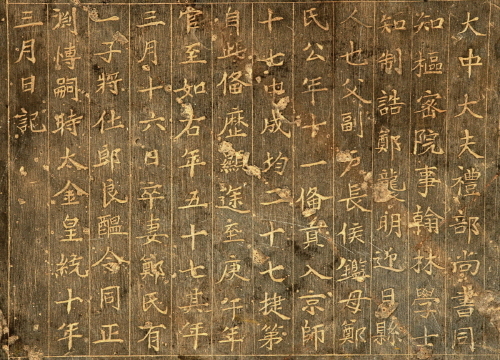 大中大夫禮部尚書同
知樞密院事翰林學士
知制誥鄭襲明迎日縣
人也父副戶長侯鑑母鄭
氏公年十一偹貢入京師
十七中成均二十七捷第
自此偹歷顯途至庚午年
官至如右年五十七其年
三月十六日卒妻鄭氏有
一子將仕郎良醞令同正
愽嗣時太金皇統十年
三月日記